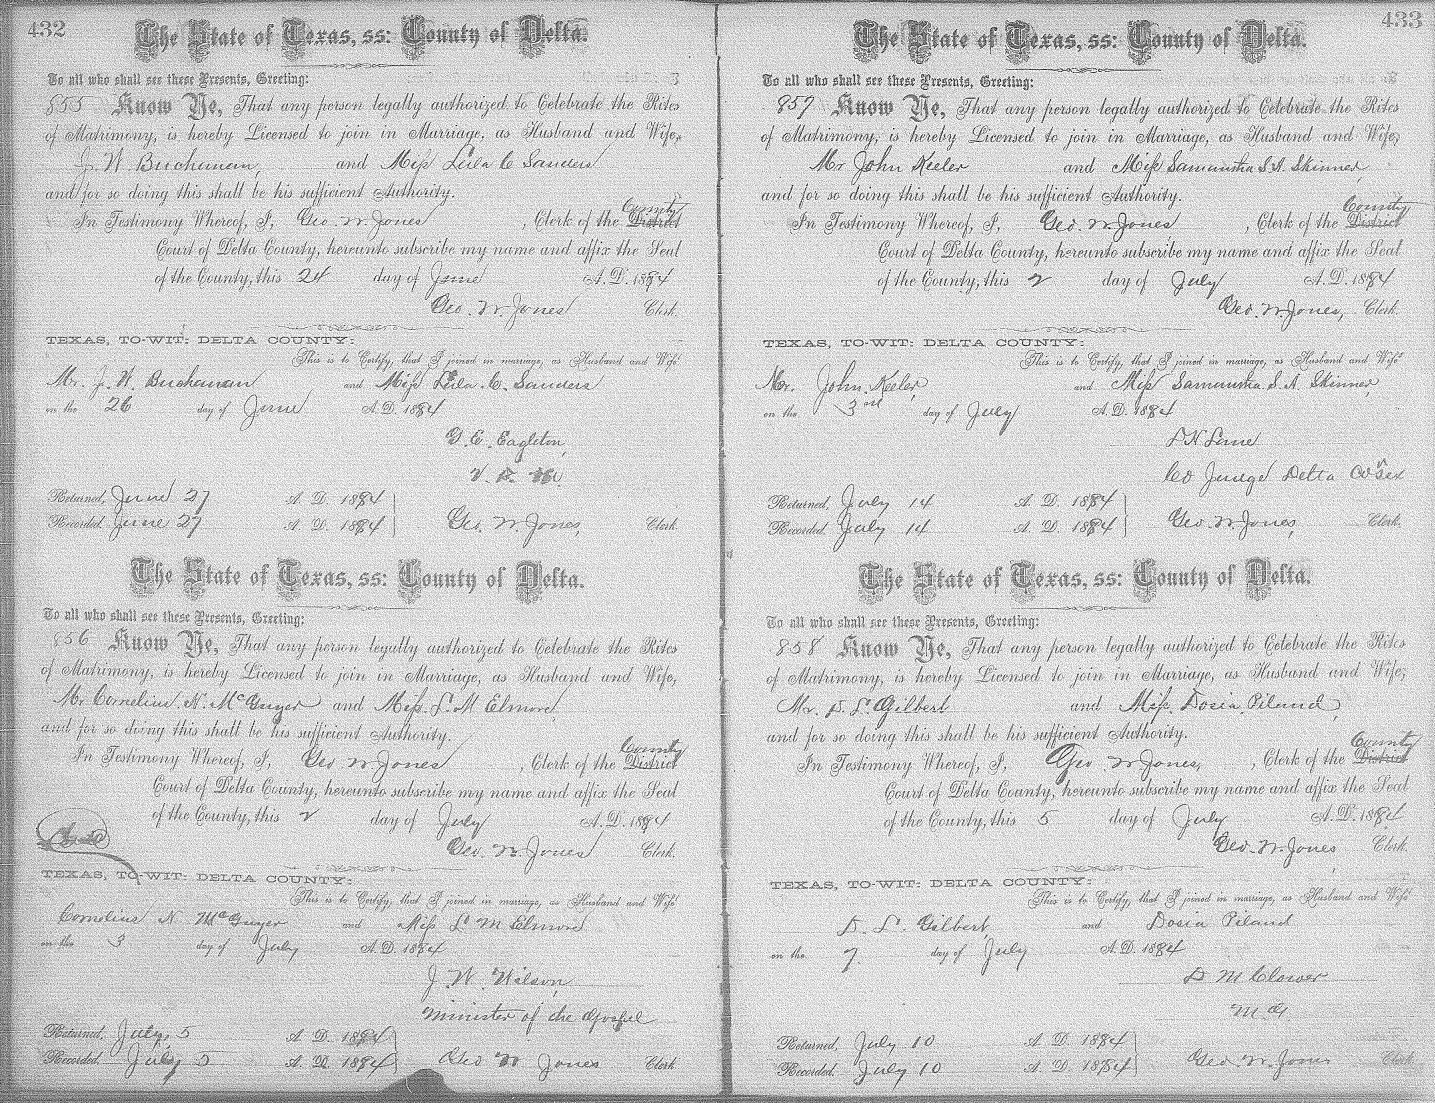 432
The State of Texas, ss: County of Delta.
To all who shall see these Presents, Greeting:
855 Know Ye, That any person legally authorized to Celebrate the Rites
of Matrimony, is hereby Licensed to join in Marriage, as Husband and Wife,
J. W. Buchanan, and Miss Leila C Sanders
and for so doing this shall be his sufficient Authority.
In Testimony Whereof, I, Geo. W Jones, Clerk of the District County
Court of Delta County, hereunto subscribe my name and affix the Seal
of the County, this 24 day of June A. D. 1884
Geo. W. Jones Clerk.
TEXAS, TO-WIT: DELTA COUNTY:
This is to Certify, that I joined in marriage, as Husband and Wife
Mr. J. W. Buchanan and Miss Leila. C. Sanders
on the 26 day of June A. D. 1884
G. C. Eagleton,
Returned, June 27 A. D. 1884
Recorded June 27 A. D. 1884 Geo. W. Jones, Clerk
The State of Texas, ss: County of Delta.
To all who shall see these Presents, Greeting:
856 Know Ye, That any person legally authorized to Celebrate the Rites
of Matrimony, is hereby Licensed to join in Marriage, as Husband and Wife,
Mr Cornelius. N. McGuyer and Miss. L. M Elmore,
and for so doing this shall be his sufficient Authority.
In Testimony Whereof, I, Geo W Jones, Clerk of the District County
Court of Delta County, hereunto subscribe my name and affix the Seal
of the County, this 2 day of July A. D. 1884
Geo. W. Jones Clerk.
TEXAS, TO-WIT: DELTA COUNTY:
This is to Certify, that I joined in marriage, as Husband and Wife
Cornelius N McGuyer and Miss L. M Elmore
on the 3 day of July A. D. 1884
J. W. Wilson,
Minister of the Gospel
Returned, July, 5 A. D. 1884
Recorded, July 5 A. D. 1884 Geo W Jones Clerk
433
The State of Texas, ss: County of Delta.
To all who shall see these Presents, Greeting:
857 Know Ye, That any person legally authorized to Celebrate the Rites
of Matrimony, is hereby Licensed to join in Marriage, as Husband and Wife,
Mr John Keeler and Miss Samantha S. A. Skinner
and for so doing this shall be his sufficient Authority.
In Testimony Whereof, I, Geo. W Jones, Clerk of the District County
Court of Delta County, hereunto subscribe my name and affix the Seal
of the County, this 2 day of July A. D. 1884
Geo. W. Jones, Clerk.
TEXAS, TO-WIT: DELTA COUNTY:
This is to Certify, that I joined in marriage, as Husband and Wife
Mr. John. Keeler, and Miss Samantha. S. A. Skinner,
on the 3rd day of July A. D. 1884
Lane
Co Judge Delta Co Tex
Returned, July 14 A. D. 1884
Recorded. July 14 A. D. 1884 Geo. W. Jones, Clerk.
The State of Texas, ss: County of Delta.
To all who shall see these Presents, Greeting:
858 Know Ye, That any person legally authorized to Celebrate the Rites
of Matrimony, is hereby Licensed to join in Marriage, as Husband and Wife,
Mr. D. L. Gilbert and Miss. Dosia. Piland,
and for so doing this shall be his sufficient Authority.
In Testimony Whereof, I, Geo W Jones, , Clerk of the District County
Court of Delta County, hereunto subscribe my name and affix the Seal
of the County, this 5 day of July A. D. 1884
Geo. W. Jones, Clerk.
TEXAS, TO-WIT: DELTA COUNTY:
This is to Certify, that I joined in marriage, as Husband and Wife
D. L. Gilbert and Dosia Piland
on the 7. day of July A. D. 1884
D M Clower
M G.
Returned, July 10 A. D. 1884
Recorded. July 10 A. D. 1884 Geo. W. Jones Clerk